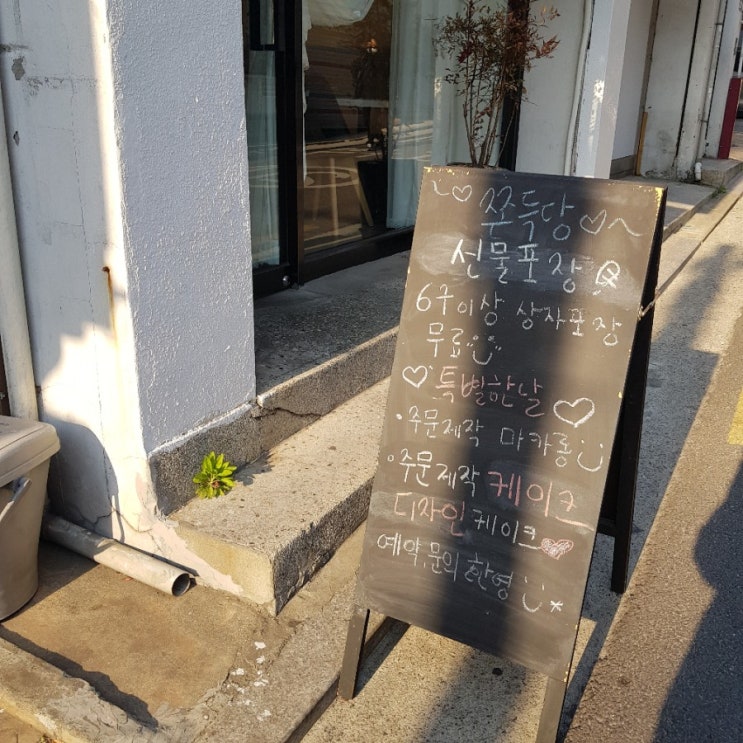 쫀득당
선물포장
6구이상 상자포장
무료
특별한날
·주문제작 마카롱
·주문제작 케이크
디자인케이크
예약,문의 환영